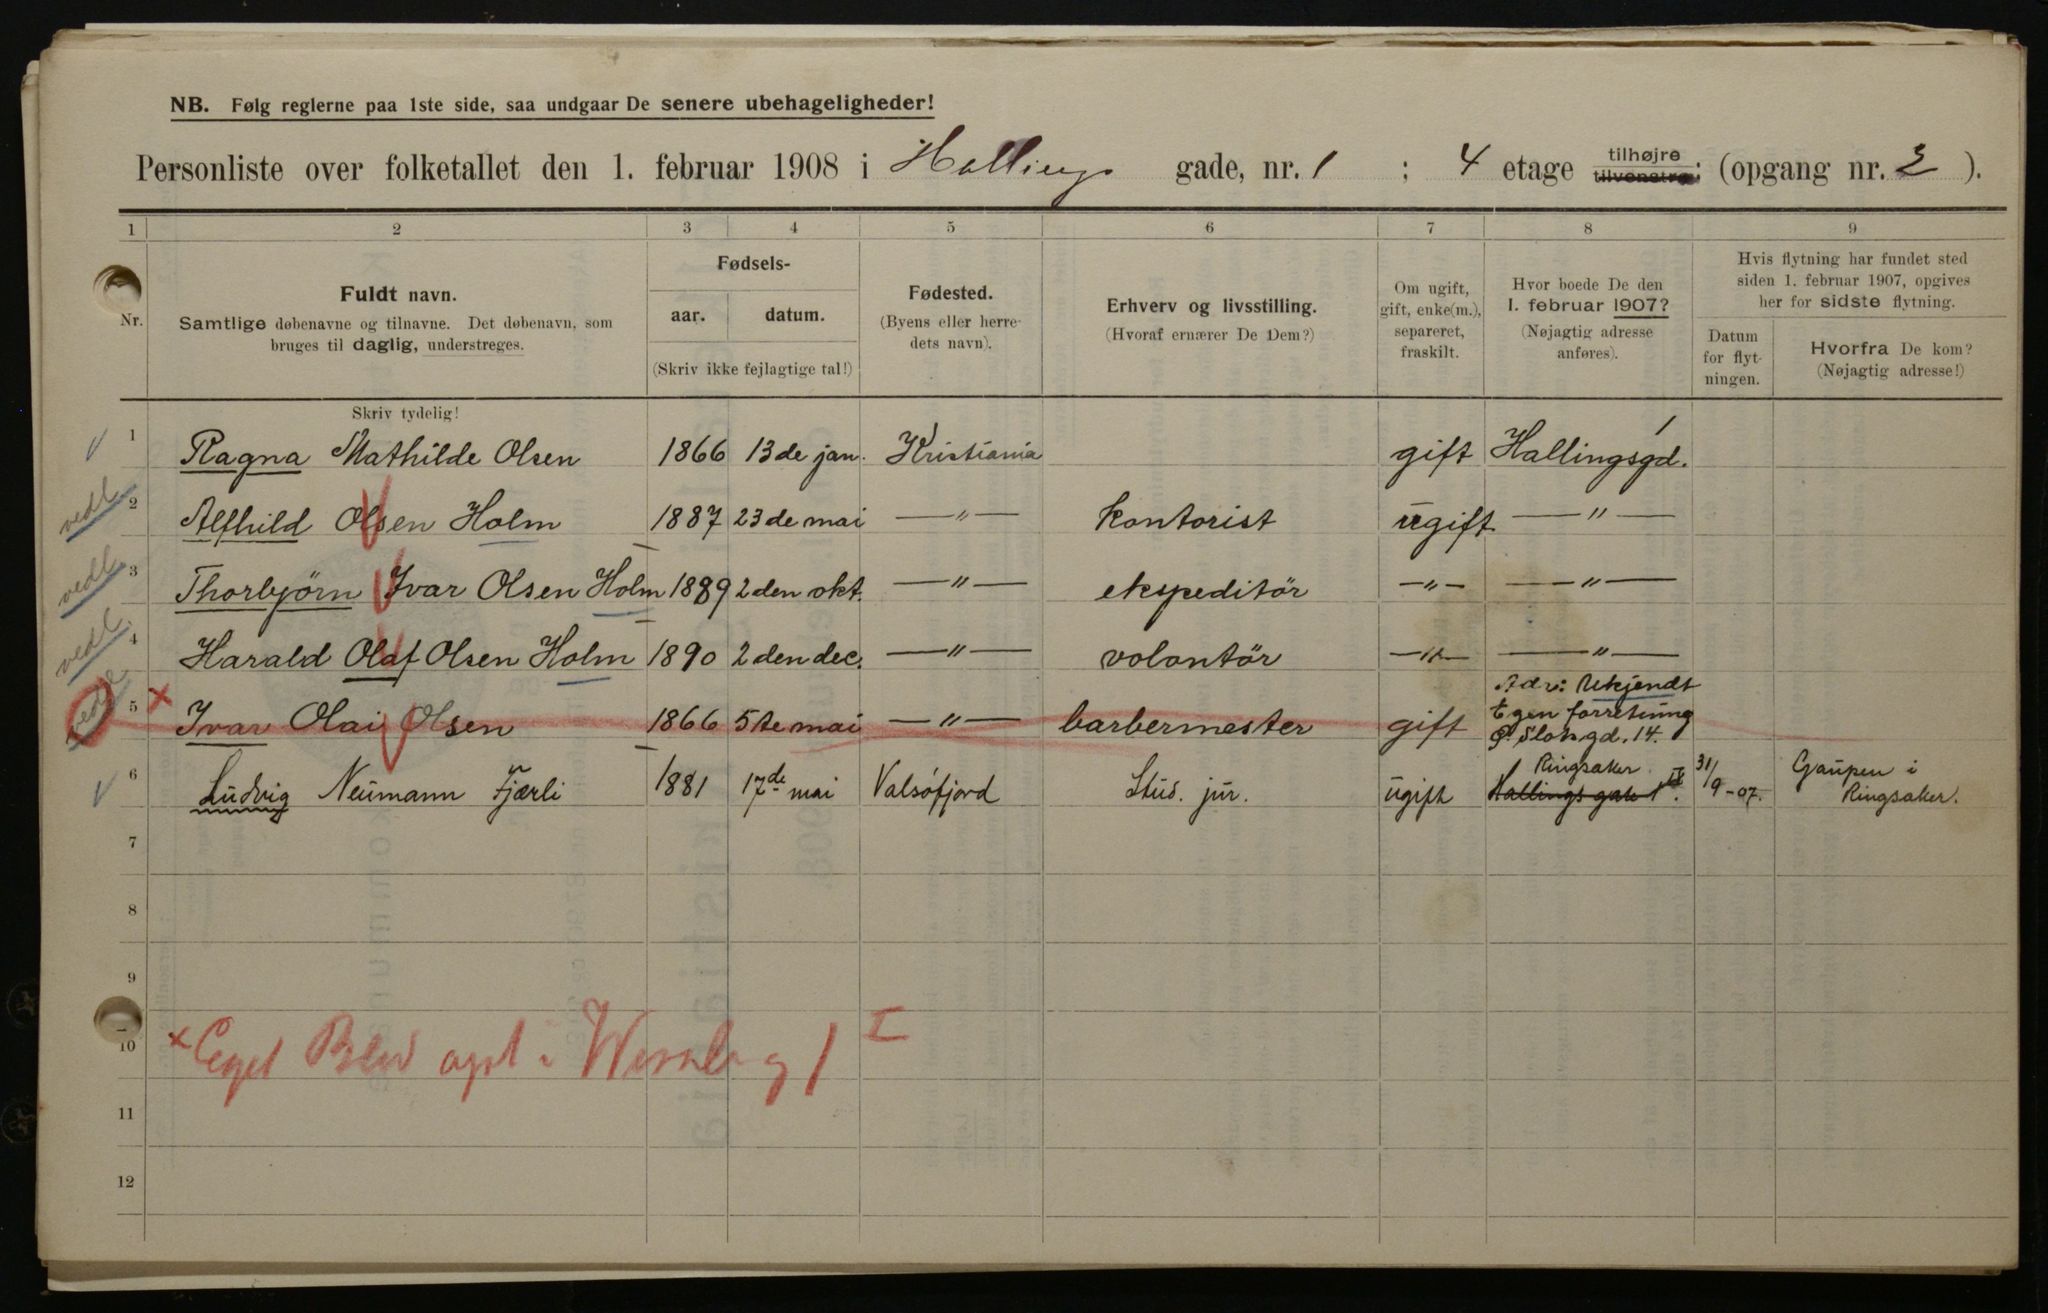 NB. Følg reglerne paa 1ste side, saa undgaar De senere ubehageligheder!
Personliste over folketallet den 1. februar 1908 i Hallings gade, nr. 1 ; 4 etage tilhøjre tilvenstre; (opgang nr. 2 ).
1 2 3 4 5 6 7 8 9
Nr.
Fuldt navn.
Samtlige døbenavne og tilnavne. Det døbenavn, som
bruges til daglig, understreges.
Skriv tydelig!
Fødsels-
aar. datum.
(Skriv ikke fejlagtige tal!)
Fødested.
(Byens eller herre-
dets navn).
Erhverv og livsstilling.
(Hvoraf ernærer De Dem?)
Om ugift,
gift, enke(m.),
separeret,
fraskilt.
Hvor boede De den
1. februar 1907?
(Nøjagtig adresse
anføres).
Hvis flytning har fundet sted
siden 1. februar 1907, opgives
her for sidste flytning.
Datum
for flyt-
ningen.
Hvorfra De kom?
(Nøjagtig adresse!)
1 Ragna Mathilde Olsen 1866 13de jan. Kristiania gift Hallingsgd. 1
vedl 2 Alfhild Olsen Holm 1887 23de mai —"— kontorist ugift —"—
vedl 3 Thorbjörn Ivar Olsen Holm 1889 2den okt. —"— ekspeditör —"— —"—
vedl. 4 Harald Olaf Olsen Holm 1890 2den dec. —"— volontör —"— —"—
vedl × 5 Ivar Olai Olsen 1866 5te mai —"— barbermester gift Adr: Ukjendt
Egen forretning
Slotsgd. 14.
6 Ludvig Neumann Fjærli 1881 17de mai Valsøfjord Stud. jur. ugift Ringsaker
Hallings gate 1 IV. 31/9-07. Gaupen i
Ringsaker.
7
8
9
10
× Eget Blad I
11
12